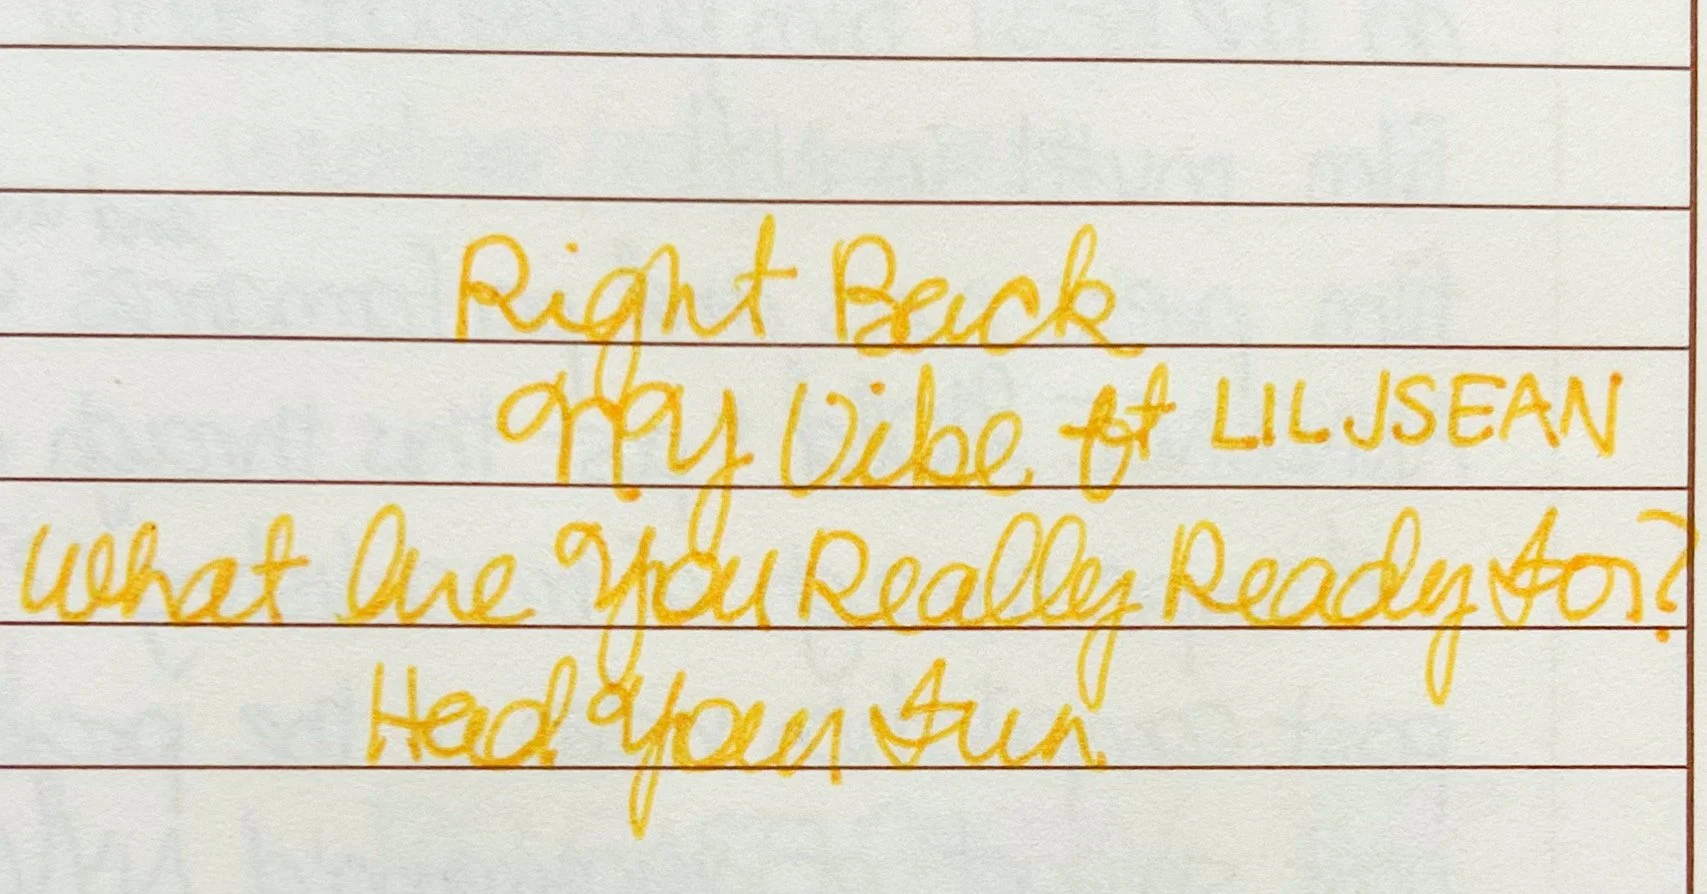 Right Back
My Vibe ft LILJSEAN
What Are You Really Ready For?
Had Your Fun